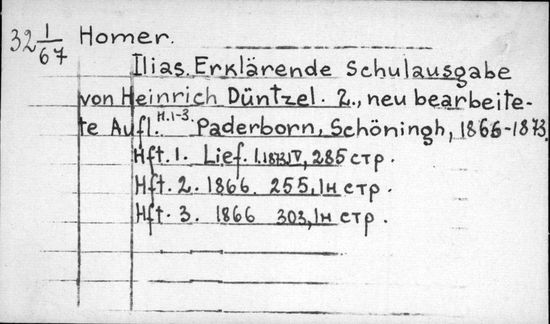 32 1/67 Homer.
Ilias. Erklärende Schulausgabe
von Heinrich Düntzel. 2., neu bearbeite-
te Aufl. H.1-3. Paderborn, Schöningh, 1866-1873.
Hft. 1. Lief. I. 1873. IV, 285 стр.
Hft. 2. 1866. 255, 1н стр.
Hft. 3. 1866 303, 1н стр.